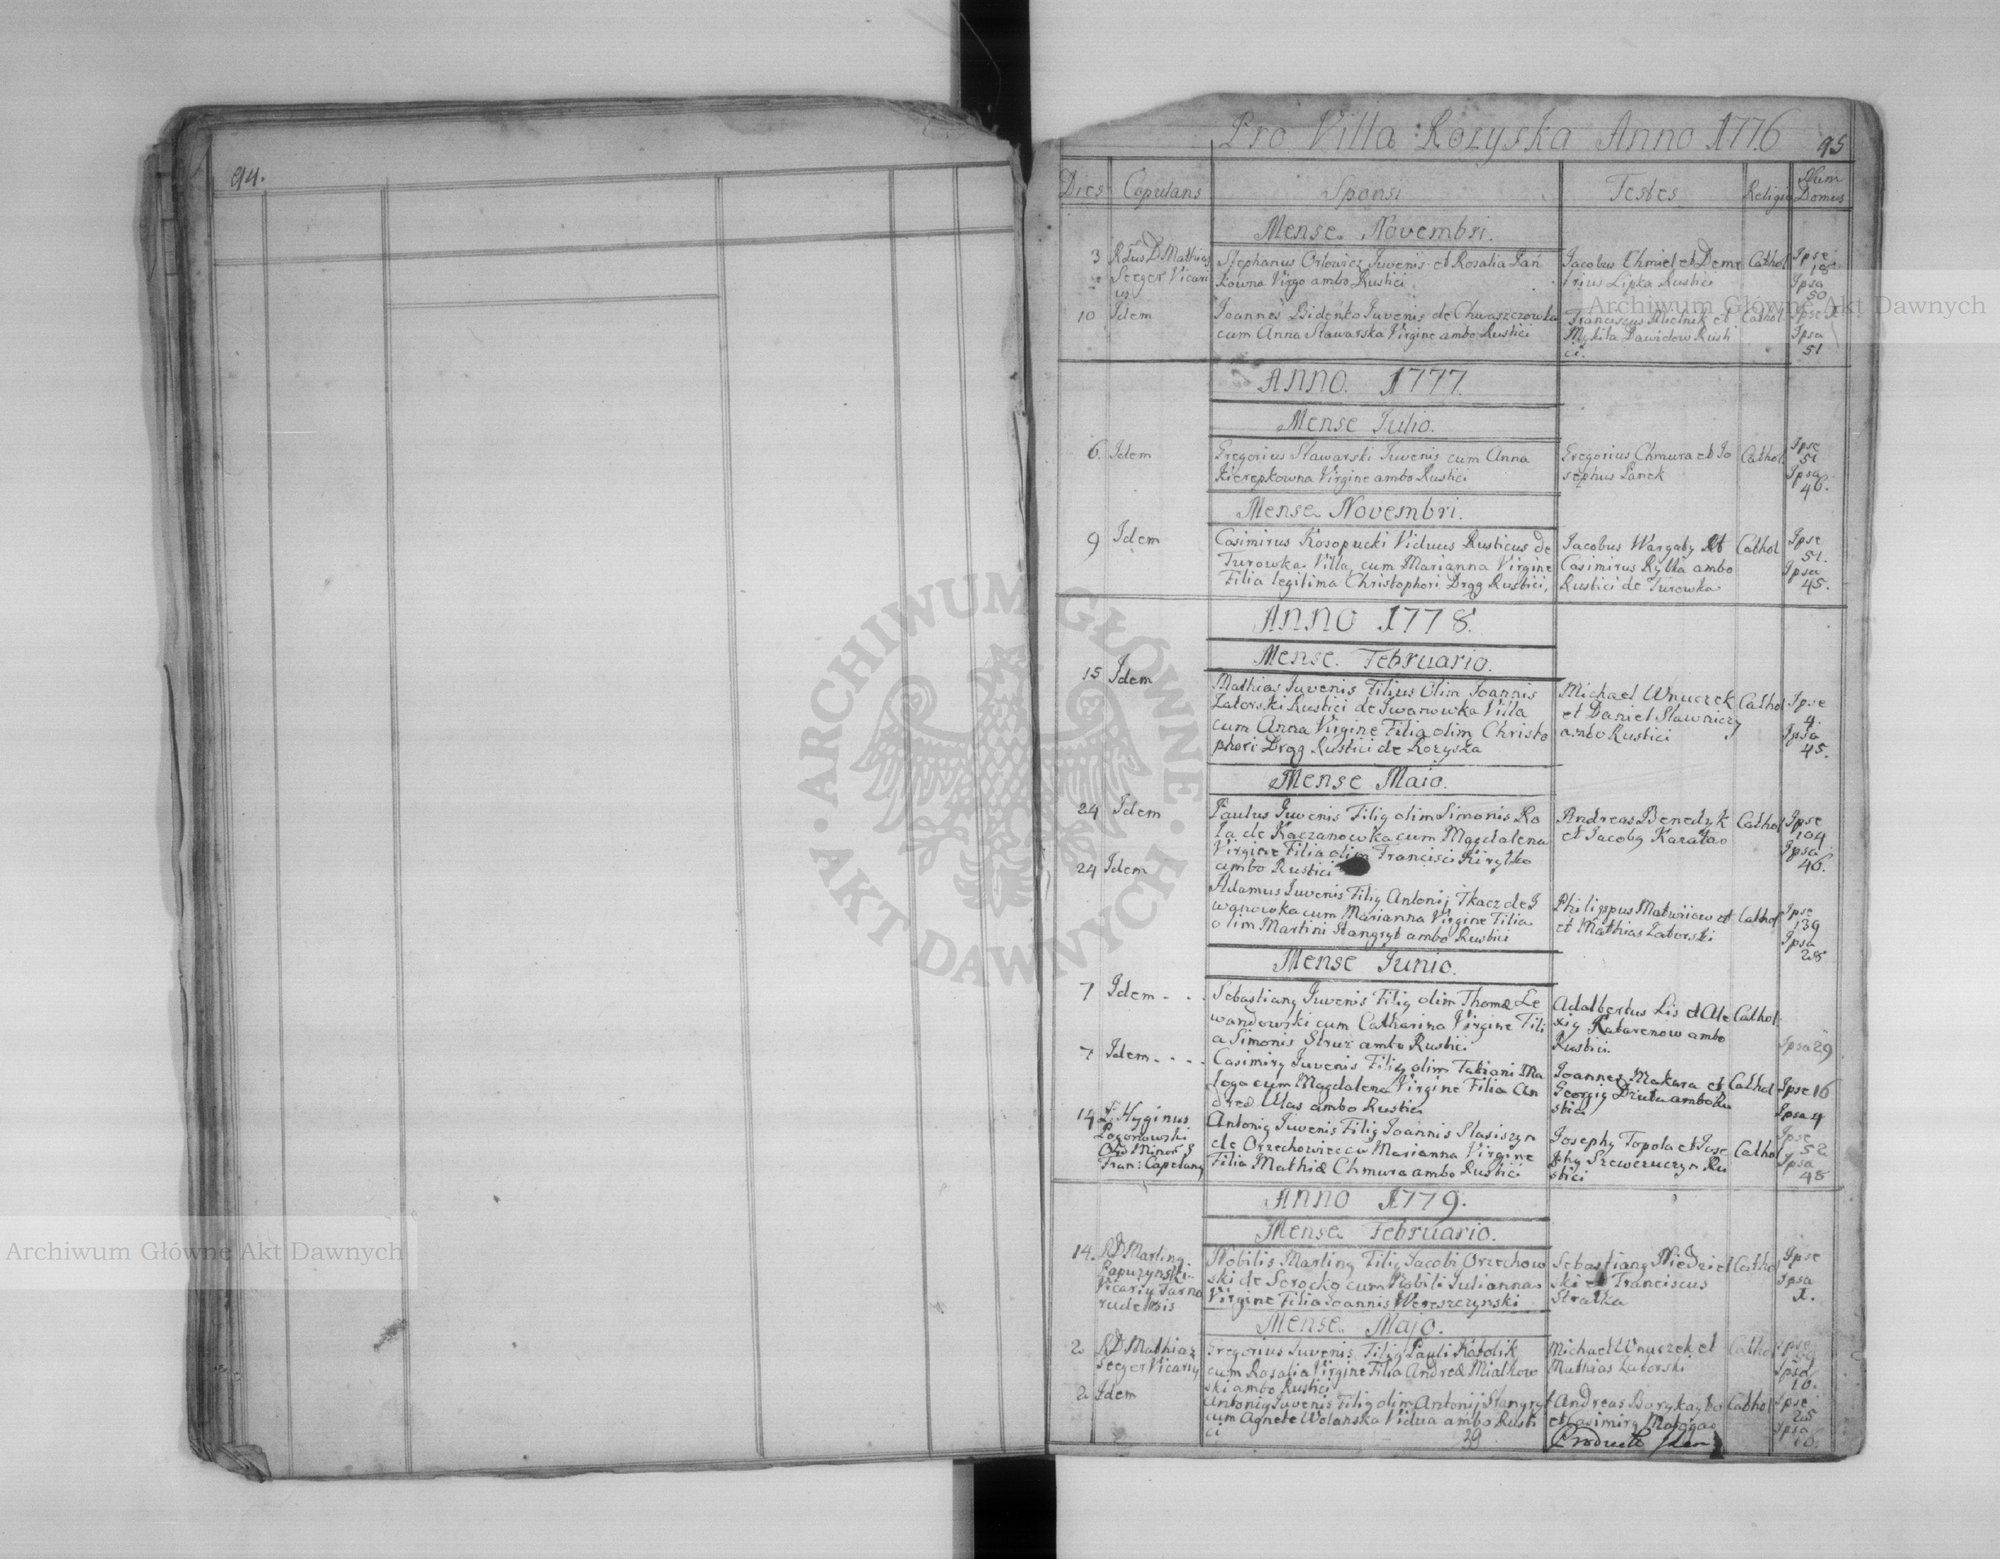 94.
Pro Villa Rozyska Anno 1776
95
Dies Copulans Sponsi Testes Religio Num Domus
Mense Novembri.
3 Mathias Seeger Vicarius
Stephanus Orłowicz Juvenis et Rosalia
Virgo ambo Rustici
Jacobus Chmiel et Deme
trius Lipka Rustici
Cathol
Ipse 18
Ipsa 50
10 Idem
Joannes Didenko Juvenis de Chwaszczowka
cum Anna Sławarska Virgine ambo Rustici
Franciscus Mielnik et
Mykita Dawidow Rusti
ci.
Cathol
Ipse
Ipsa
51
Anno. 1777.
Mense Julio.
6 Idem
Gregorius Sławarski Juvenis cum Anna
Virgine ambo Rustici
Gregorius Chmura et Jo
sephus Panek
Cathol
Ipse
51
Ipsa
46.
Mense Novembri.
9 Idem
Casimirus Kosopucki Viduus Rusticus de
Turowka Villa, cum Marianna Virgine
Filia legitima Christophori Drąg Rustici,
Jacobus Wargaty et
Casimirus Rylka ambo
Rustici de Turowka
Cathol
Ipse
51.
Ipsa
45.
Anno 1778.
Mense Februario.
15 Idem
Mathias Juvenis Filius Olim Joannis
Zatorski Rustici de Iwanowka Villa
cum Anna Virgine Filia olim Christo
phori Drąg Rustici de Rozyska
Michael Wnuczek
et Daniel Sławniczy
ambo Rustici
Cathol
Ipse
4.
Ipsa
45.
Mense Maio.
24 Idem
Paulus Juvenis Filiq olim Simonis Ro
la de Kaczanowka cum Magdalena
Virgine Filia olim Francisci Kiryłko
ambo Rustici
Andreas Benedyk
et Jacobq Karataо
Cathol
Ipse
104
Ipsa
46.
24 Idem
Adamus Juvenis Filiq Antonij Tkacz de I
wanowka cum Marianna Virgine Filia
olim Martini Stangryt ambo Rustici
Philippus Matwiiow et
et Mathias Zatorski
Cathol
Ipse
139
Ipsa
28
Mense Junio.
7 Idem
Sebastianq Juvenis Filiq olim Thomæ Le
wandowski cum Catharina Virgine Fili
a Simonis Struz ambo Rustici
Adalbertus Lis et Ale
xiq Katarenow ambo
Rustici.
Cathol.
Ipsa 29
7 Idem
Casimirq Juvenis Filiq olim Fabiani Ma
loga cum Magdalena Virgine Filia An
dreæ Was ambo Rustici
Joannes Makara et
Georgiq Dziuba ambo Ru
stici
Cathol
Ipse 16
Ipsa 4
14 P. Hyginus
Pogonowski
Ord Minor S
Fran: Capelanq
Antoniq Juvenis Filiq Joannis Stasiszyn
de Orzechowiec cu Marianna Virgine
Filia Mathiæ Chmura ambo Rustici
Josephq Topola et Jose
phq Szewczuczyn Ru
stici
Cathol
Ipse
52
Ipsa
48
Anno 1779.
Mense Februario.
14. RD Martinq
Papuzynski
Vicariq Tarno
rudensis
Nobilis Martinq Filiq Jacobi Orzechow
ski de Serocko cum Nobili Julianna
Virgine Filia Joannis Wereszczynski
Sebastianq Niedziel
ski et Franciscus
Strałka
Cathol
Ipse
Ipsa
1.
Mense Majo.
2 RD Mathias
Seeger Vicariq
Gregorius Juvenis Filiq Pauli Katolik
cum Rosalia Virgine Filia Andreæ Miałkow
ski ambo Rustici
Michael Wnuczek et
Mathias Zatorski
Cathol
Ipse
Ipsa
10.
2 Idem
Antoniq Juvenis Filiq olim Antonij Stangryt
cum Agnete Wolanska Vidua ambo Rusti
ci
Andreas
et Casimirq
Cathol
Ipse
25
Ipsa
29
Archiwum Główne Akt Dawnych
Archiwum Główne Akt Dawnych
ARCHIWUM GŁÓWNE AKT DAWNYCH